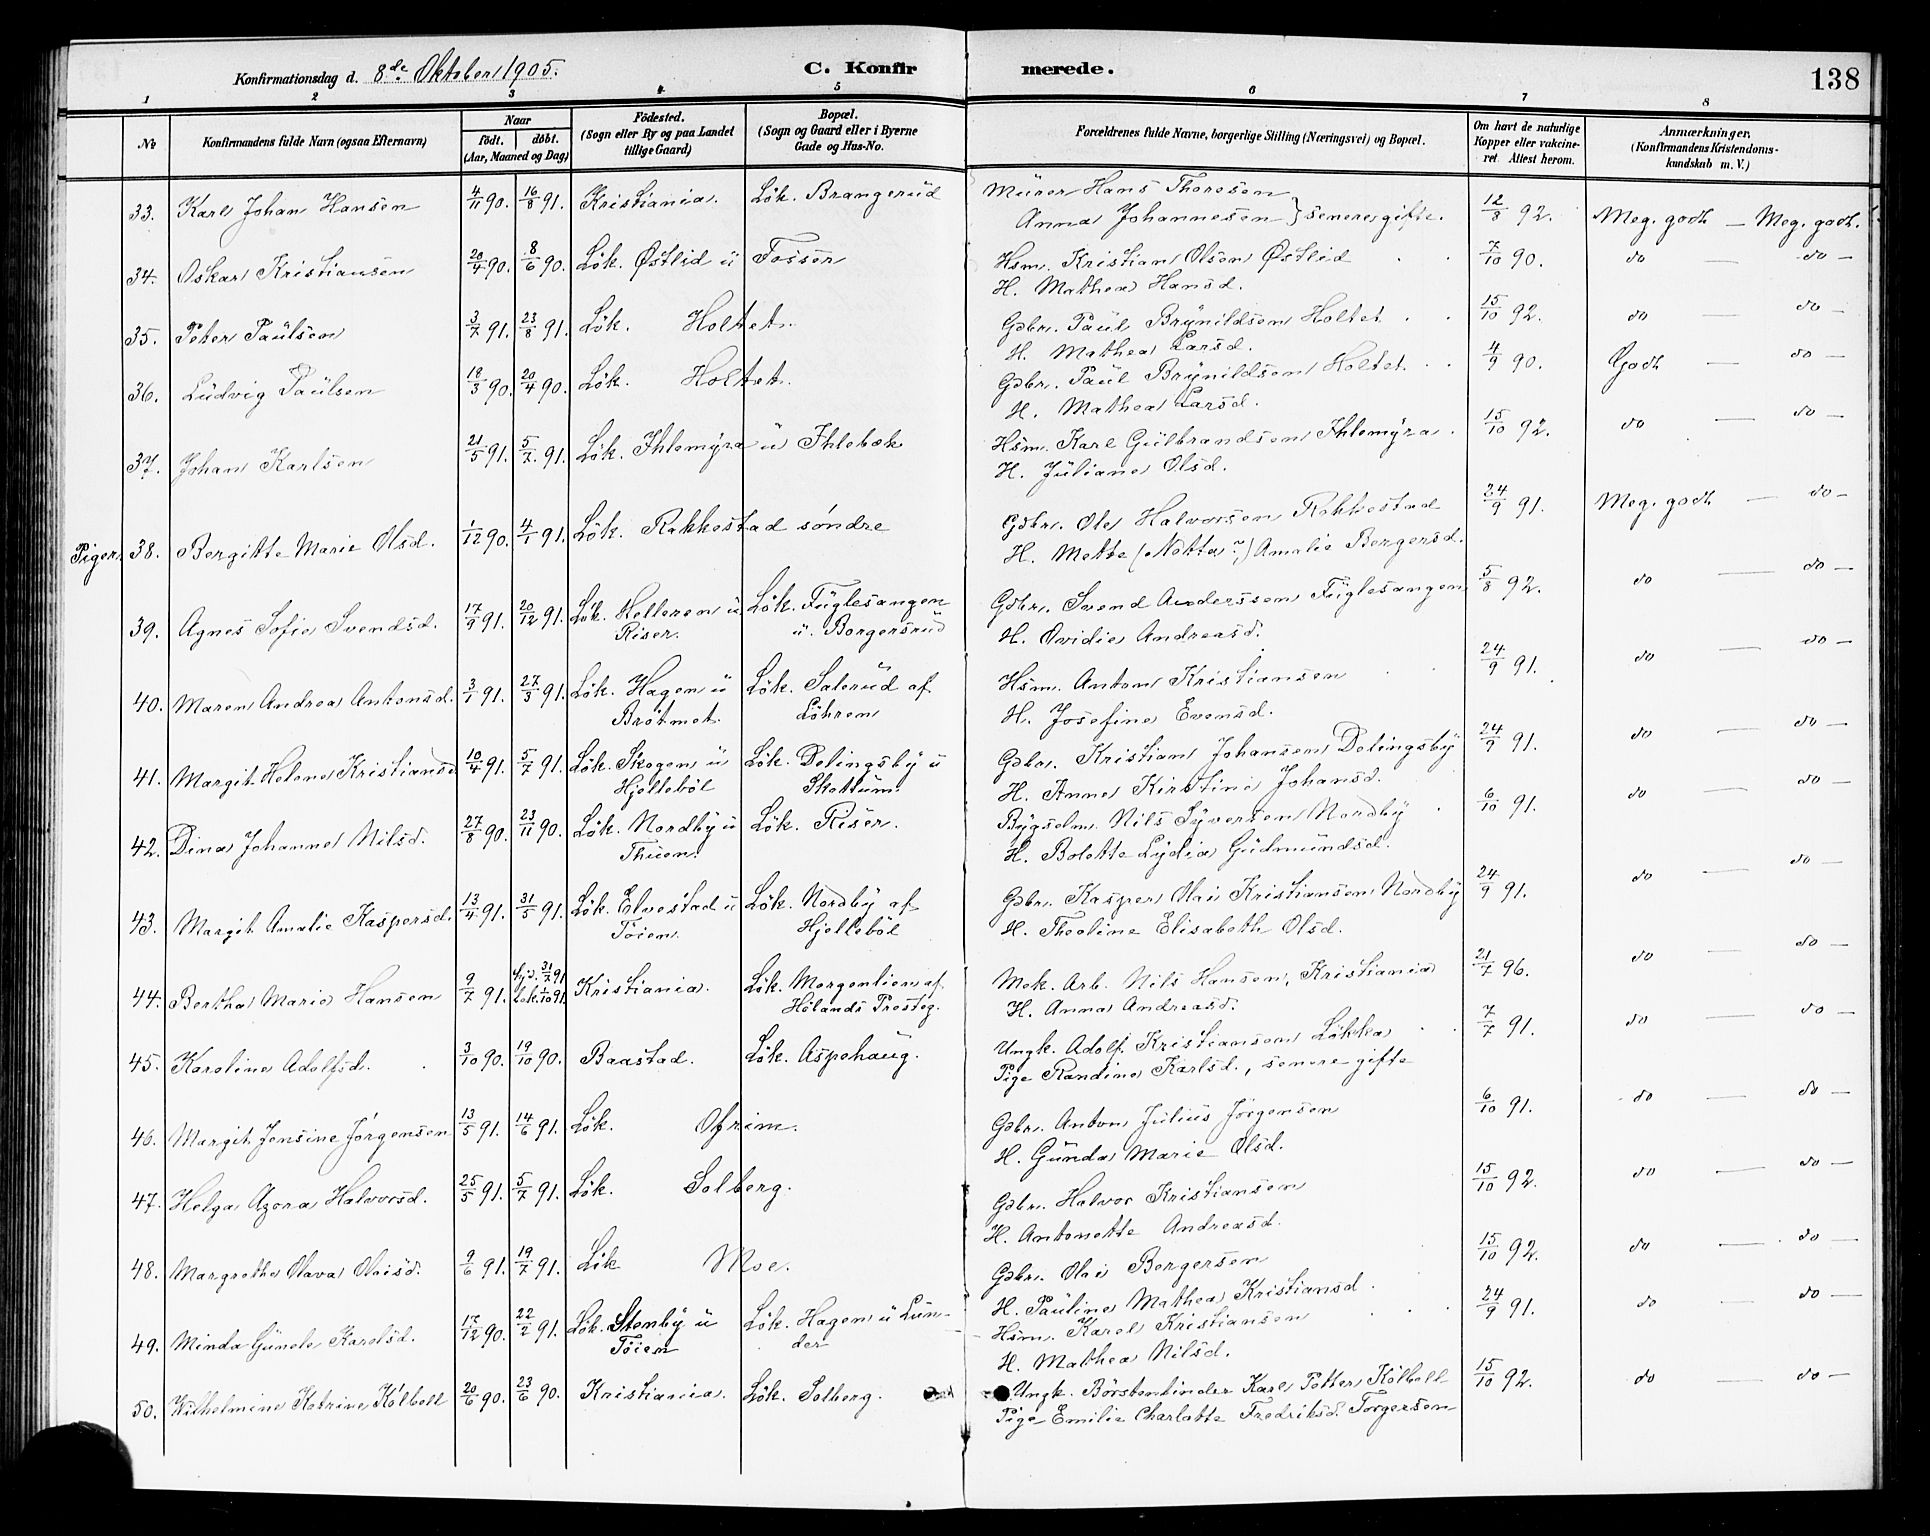 Konfirmationsdag d. 8de Oktober 1905. C. Konfirmerede. 138
1 2 3 4 5 6 7 8
No Konfirmandens fulde Navn (ogsaa Efternavn) Naar født. døbt. (Aar, Maaned og Dag) Födested. (Sogn eller By og paa Landet tillige Gaard) Bopæl. (Sogn og Gaard eller i Byerne Gade og Hus-No. Forældrenes fulde Navne, borgerlige Stilling (Næringsvei) og Bopæl. Om havt de naturlige Kopper eller vakcineret. Attest herom. Anmærkninger. (Konfirmandens Kristendomskundskab m. V.)
33. Karl Johan Hansen 4/11 90. 16/8 91. Kristiania. Løk. Brangerud Murer Hans Thoresen 12/8 92. Meg. godt — Meg. godt.
Anna Johannesen } senere gifte.
34. Oskar Kristiansen 20/4 90. 8/6 90. Løk. Østlid u Fosser Hsm. Kristian Olsen Østlid 7/10 90. do — do —
H. Mathea Hansd.
35. Peter Paulsen 3/7 91. 23/8 91. Løk. Holtet. Gdbr. Paul Brynildsen Holtet. 15/10 92. do — do —
H. Mathea Larsd.
36. Ludvig Paulsen 18/3 90. 20/4 90. Løk. Holtet. Gdbr. Paul Brynildsen Holtet. 4/9 90. Godt — do —
H. Mathea Larsd.
37. Johan Karlsen 21/5 91. 5/7 91. Løk. Ihlemyra u Ihlebæk Hsm. Karl Gulbrandsen Ihlemyra. 15/10 92. do — do —
H. Juliane Olsd.
Piger. 38. Bergitte Marie Olsd. 1/12 90. 4/1 91. Løk. Rakkestad søndre Gdbr. Ole Halvorsen Rakkestad 24/9 91. Meg. godt — do —
H. Mette (Netta?) Amalie Bergersd.
39. Agnes Sofie Svendsd. 17/9 91. 20/12 91. Løk. Helleren u Løk. Fuglesangen Gdbr. Svend Anderssen Fuglesangen 5/8 92. do — do —
Riser. u. Borgersrud H. Ovidie Andreasd.
40. Maren Andrea Antonsd. 3/1 91. 27/3 91. Løk. Hagen u Løk. Salerud af Hsm. Anton Kristiansen 24/9 91. do — do —
Brøtmet. Løkren H. Josefine Evensd.
41. Margit Helene Kristiansd. 10/4 91. 5/7 91. Løk. Skogen u Løk. Delingsby u Gdbr. Kristian Johansen Delingsby 24/9 91. do — do —
Hjellebøl Skattum. H. Anne Kirstine Johansd.
42. Dina Johanne Nilsd. 27/8 90. 23/11 90. Løk. Nordby u Løk. Riser. Bygselm. Nils Syversen Nordby 6/10 91. do — do —
Thuen. H. Bolette Lydia Gudmundsd.
43. Margit Amalie Kaspersd. 13/4 91. 31/5 91. Løk. Elvestad u Løk. Nordby af Gdbr. Kasper Olai Kristiansen Nordby 24/9 91. do — do —
Tøien. Hjellebøl H. Theoline Elisabeth Olsd.
44. Bertha Marie Hansen 9/7 91. 31/7 91 Løk. 1/10 91. Kristiania. Løk. Morgenlien af Mek. Arb. Nils Hansen, Kristiania 21/7 96. do — do —
Hølands Presteg. H. Anna Andreasd.
45. Karoline Adolfsd. 3/10 90. 19/10 90. Baastad. Løk. Aspehaug. Ungk. Adolf Kristiansen Løkka 7/7 91. do — do —
Pige Randine Karlsd., senere gifte
46. Margit Jensine Jørgensen 13/5 91. 14/6 91. Løk. Ofrim. Gdbr. Anton Julius Jørgensen 6/10 91. do — do —
H. Gunda Marie Olsd.
47. Helga Azora Halvorsd. 25/5 91. 5/7 91. Løk. Solberg. Gdbr. Halvor Kristiansen 15/10 92. do — do —
H. Antonette Andreasd.
48. Margrethe Olava Olaisd. 9/6 91. 19/7 91. Løk Moe. Gdbr. Olai Bergersen 15/10 92. do — do —
H. Pauline Mathea Kristiansd.
49. Minda Gunele Karelsd. 17/12 90. 22/2 91. Løk. Stenby u Løk. Hagen u Lun- Hsm. Karel Kristiansen 24/9 91. do — do —
Tøien der H. Mathea Nilsd.
50. Wilhelmine Katrine Kølbell 20/6 90. 23/6 90. Kristiania. Løk. Solberg. Ungk. Børstenbinder Karl Petter Kølbell 15/10 92. do — do —
Pige Emilie Charlotte Fredriksd. Torgersen